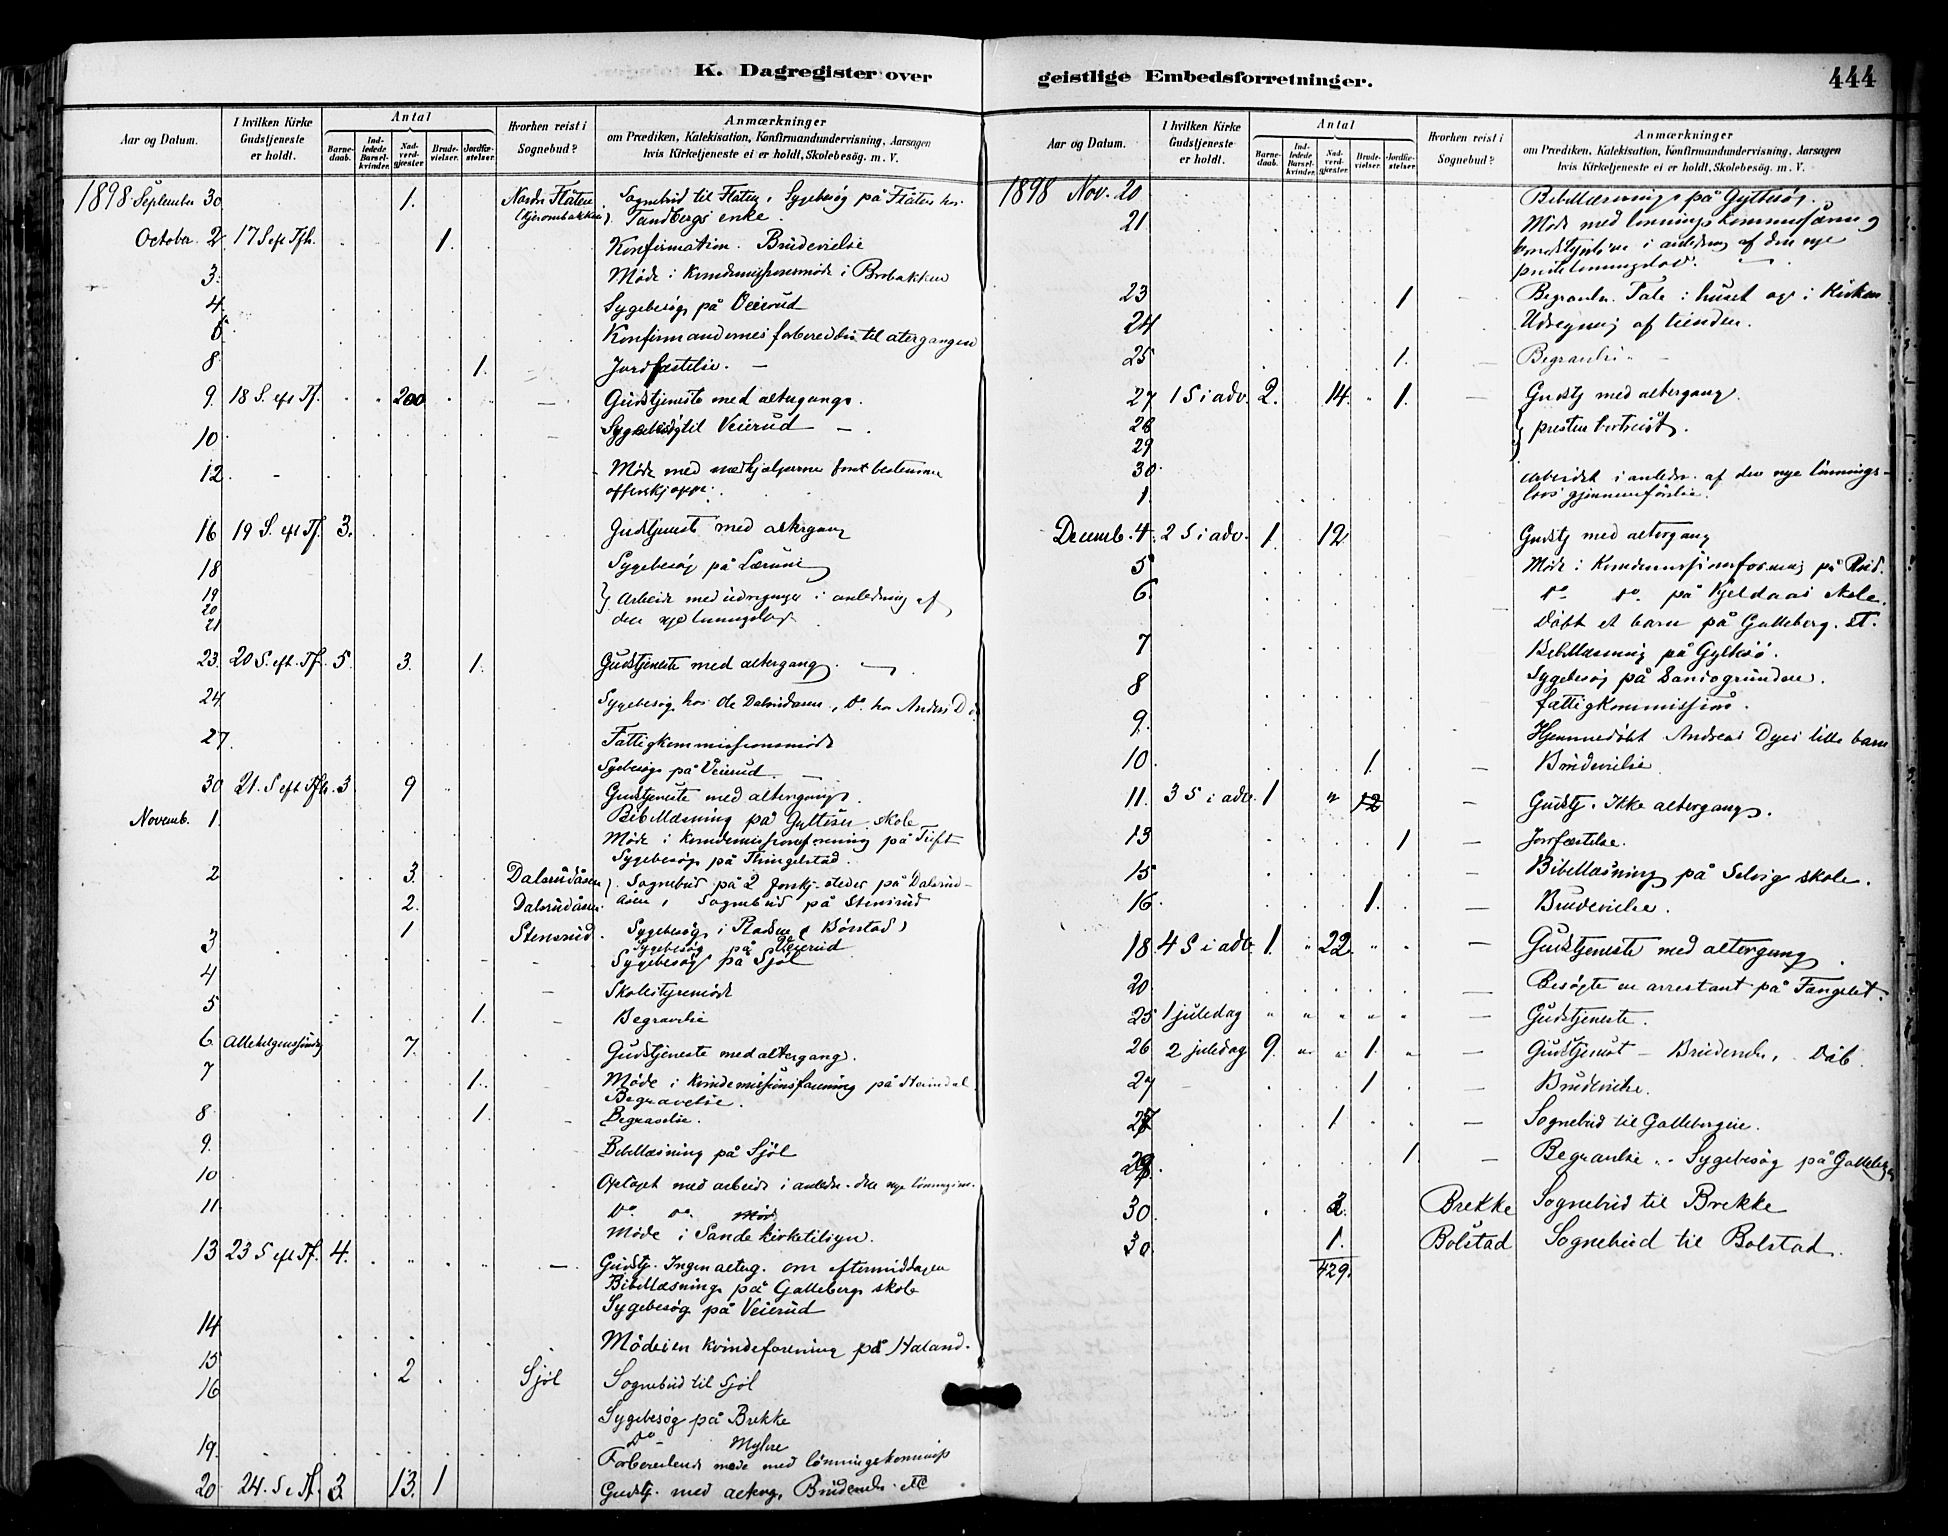 K. Dagregister over
Aar og Datum.
I hvilken Kirke Gudstjeneste er holdt.
Antal
Barnedaab.
Indledede Barselkvinder.
Nadverdgjester
Brudevielser.
Jordfæstelser.
Hvorhen reist i Sognebud?
Anmærkninger
om Prædiken, Katekisation, Konfirmandundervisning, Aarsagen
hvis Kirketjeneste ei er holdt, Skolebesög. m. V.
1898 September 30 1. Nordre Flåten Sognebud til Flåten, Sygebesög på Flåten hos
Tandbergs enke.
October 2 17 S eft Tfh. 1. Konfirmation. Brudevielse
3. Möde i Kvindemissionsmöde i Brobakken
4 Sygebesög på Veierud
6 Konfirmandernes forberedelse til altergangen
8 1. Jordfæstelse.
9. 18 S. eft Tf. 200 Gudstjeneste med altergang.
10 Sygebesög til Veierud
12 Möde med medhjælperne
16 19 S. eft Tf. 3. Gudstjeneste med altergang
18 Sygebesög på
19
20 Arbeide med udregninger i anledning af
21 den nye lönningslov
23. 20 S. eft. Tf. 5. 3. 1. Gudstjeneste med altergang.
24 Sygebesög hos Ole Dalsrudåsen, Do hos Anders D
27. Fattigkommissionsmöde
Sygebesög på Veierud
30 21. S eft Tfh. 3 9 Gudstjeneste med altergang.
Novemb. 1. Bibellæsning på skole
Möde i Kvindemissionsforening på Tuft
Sygebesög på Thingelstad.
2 3. Dalsrudåsen Sognebud på 2 forskj. steder på Dalsrud-
2. Dalsrudåsen åsen, Sognebud på Stensrud
1 Stensrud. Sygebesög i (Börstad)
3 Sygebesög på Veierud
Sygebesög på Sjöl
4 Skolestyremöde
5 1. Begravelse
6 Allehelgenssöndag 7. Gudstjeneste med altergang.
7 1. Möde i Kvindemissionsforening på
Begravelse.
8 1. Begravelse.
9. Bibellæsning på Sjöl
10 Optaget med arbeide i anledn. den nye
11 Do Do
Möde i Sande kirketilsyn.
13 23 S eft Tf. 4. Gudstj. Ingen alterg. om eftermiddagen
Bibellæsning på Galleberg skole
Sygebesög på Veierud
14 Möde i en kvindeforening på Haland.
15 2 Sjöl Sognebud til Sjöl
16 Sygebesög på Brekke
Do Myhre
19. Forberedende möde med lönningskommis
20 24. S e Tf. 3. 13. 1 Gudstj. med alterg, Brudevielse. etc
geistlige Embedsforretninger.
444
Aar og Datum.
I hvilken Kirke Gudstjeneste er holdt.
Antal
Barnedaab.
Indledede Barselkvinder.
Nadverdgjester.
Brudevielser.
Jordfæstelser.
Hvorhen reist i Sognebud?
Anmærkninger
om Prædiken, Katekisation, Konfirmandundervisning, Aarsagen
hvis Kirketjeneste ei er holdt, Skolebesög. m. V.
1898 Nov. 20 Bibellæsning på
21 Möde med lönningskommissionen og
i anledning af den nye
23 1 Begravelse. Tale i huset og i Kirken
24 Udregning af tienden.
25 1. Begravelse
27 1 S i adv. 2. 14. 1. Gudstj med altergang.
28 presten bortreist.
29
30 arbeidet i anledn. af den nye lönnings-
1. lovs gjennemförelse.
Decemb. 4. 2 S i adv. 1. 12 Gudstj med altergang
5 Möde i Kvindemissionsforening på
6. Do Do på Kjeldaas skole.
Döbt et barn på Galleberg. st.
7 Bibellæsning på
8 Sygebesög på
Fattigkommission.
9. Hjemmedöbt Andreas lille barn
10 1. Brudevielse
11. 3 S i adv 1 " 12 Gudstj. Ikke altergang.
13 1 Jordfæstelse.
15 Bibellæsning på Selvig skole.
16 1. Brudevielse.
18 4 S i adv. 1. 22. Gudstjeneste med altergang.
20 Besögte en arrestant på Fængslet.
25 1 juledag Gudstjeneste.
26 2 juledag 9. 1. Gudstjenest - Brudevielse, Dåb
27 1 Brudevielse.
27 1 Sognebud til
29. 1 Begravelse .. Sygebesög på Galleberg
30 2. Brekke Sognebud til Brekke
30 1. Bolstad Sognebud til Bolstad.
429.